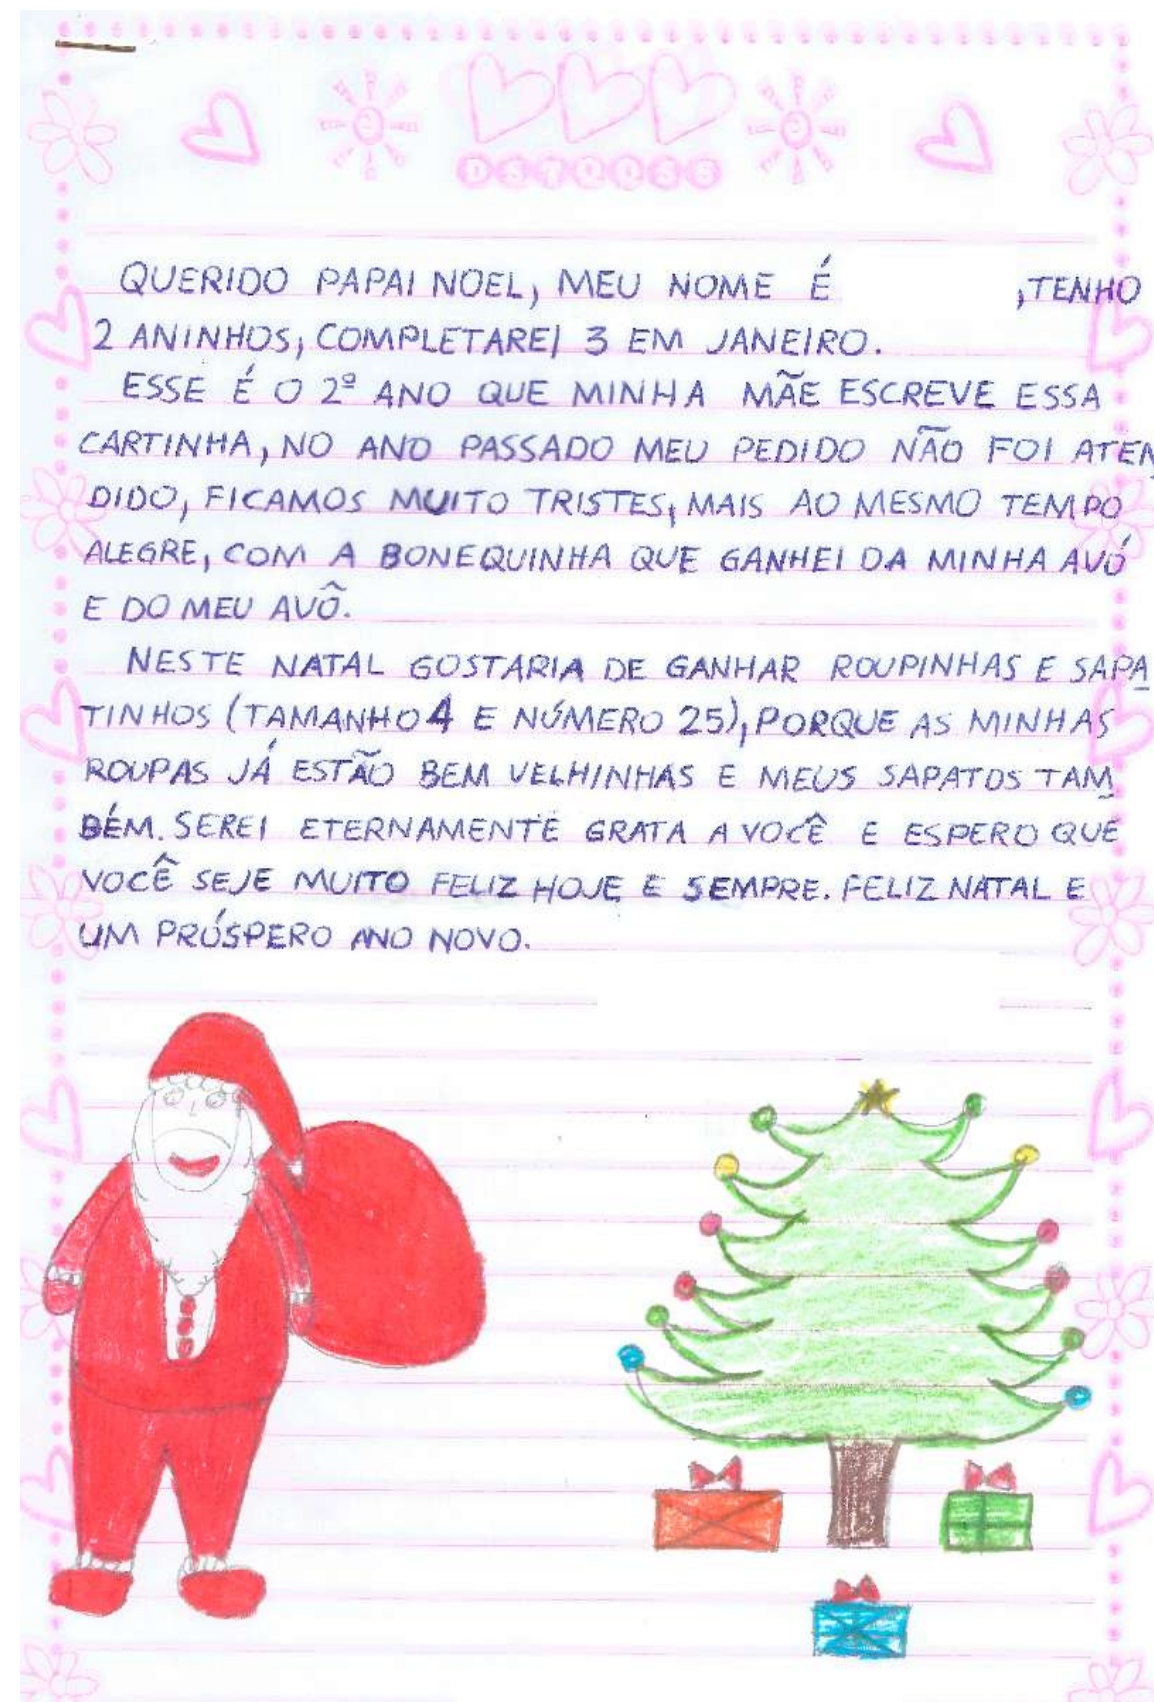 QUERIDO PAPAI NOEL, MEU NOME É ,TENHO
2 ANINHOS, COMPLETAREI 3 EM JANEIRO.
ESSE É O 2º ANO QUE MINHA MÃE ESCREVE ESSA
CARTINHA, NO ANO PASSADO MEU PEDIDO NÃO FOI ATEN
DIDO, FICAMOS MUITO TRISTES, MAIS AO MESMO TEMPO
ALEGRE, COM A BONEQUINHA QUE GANHEI DA MINHA AVÓ
E DO MEU AVÔ.
NESTE NATAL GOSTARIA DE GANHAR ROUPINHAS E SAPA
TINHOS (TAMANHO 4 E NÚMERO 25), PORQUE AS MINHAS
ROUPAS JÁ ESTÃO BEM VELHINHAS E MEUS SAPATOS TAM
BÉM. SEREI ETERNAMENTE GRATA A VOCÊ E ESPERO QUE
VOCÊ SEJE MUITO FELIZ HOJE E SEMPRE. FELIZ NATAL E
UM PRÚSPERO ANO NOVO.